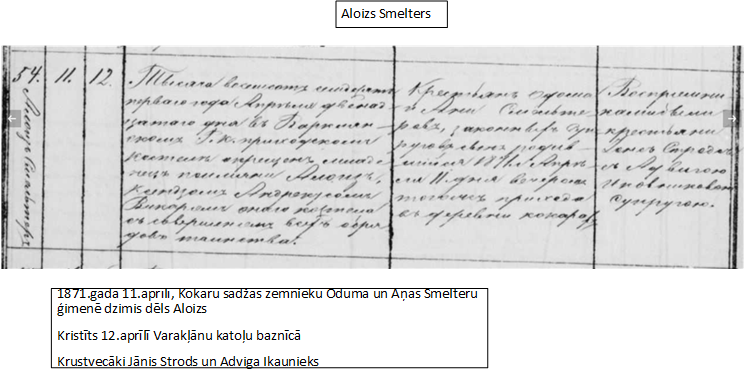 Aloizs Smelters
54.
11.
12.
Тысяча восемьсот семьдесятъ
перваго года Апрѣля двѣнад
цатаго дня въ Варклян
скомъ Р. к. приходскомъ
костелѣ окрещенъ младе
нецъ именемъ Алоизъ,
ксендзомъ
Викаріемъ онаго костела
съ совершеніемъ всѣхъ обря
довъ таинства.
Крестьянъ Одома
и Анны Смельте
ровъ, законныхъ суп
руговъ сынъ родив
шійся 1871 г. Апрѣ
ля 11 дня вечеромъ
прихода
въ деревни кокары
Воспріемни
ками были
крестьяни
Янъ Стродъ
съ Адвигою
Иковниковою
супругою.
1871.gada 11.aprīlī, Kokaru sādžas zemnieku Oduma un Aņas Smelteru
ģimenē dzimis dēls Aloizs
Kristīts 12.aprīlī Varakļānu katoļu baznīcā
Krustvecāki Jānis Strods un Adviga Ikaunieks